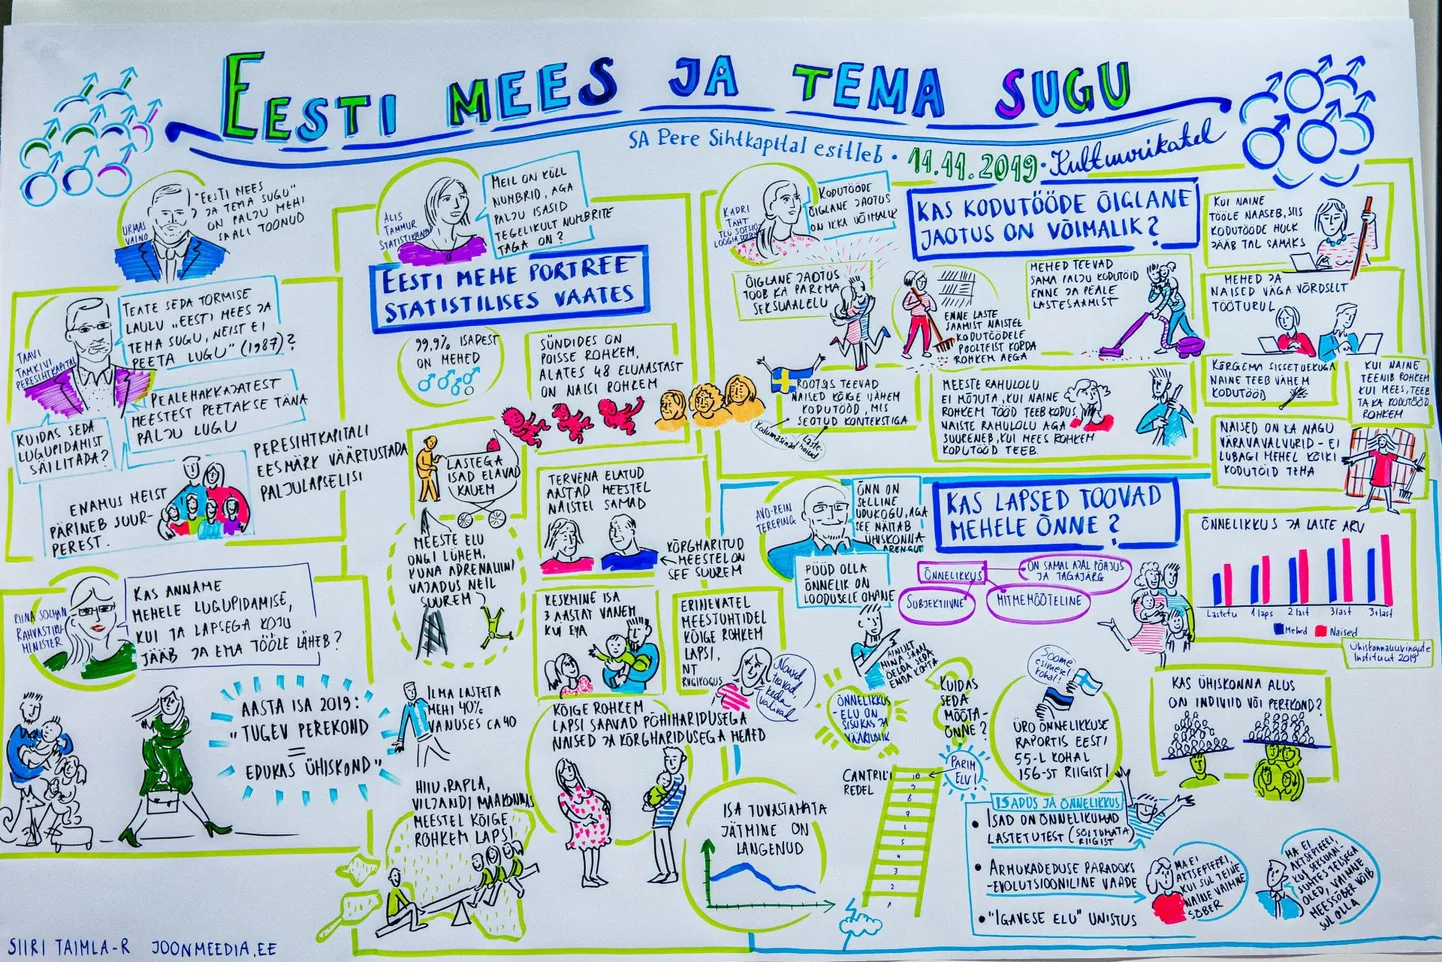 EESTI MEES JA TEMA SUGU
SA Pere Sihtkapital esitleb · 14.11.2019 · Kultuurikatel
URMAS
VAINO
"EESTI MEES
JA TEMA SUGU"
ON PALJU MEHI
SAALI TOONUD
TAAVI
TAMKIVI
PERESIHTKAPITAL
TEATE SEDA TORMISE
LAULU „EESTI MEES JA
TEMA SUGU, NEIST EI
PEETA LUGU" (1987)?
PEALEHAKKAJATEST
MEESTEST PEETAKSE TÄNA
PALJU LUGU
KUIDAS SEDA
LUGUPIDAMIST
SÄILITADA?
PERESIHTKAPITALI
EESMÄRK VÄÄRTUSTADA
PALJULAPSELISI
ENAMUS MEIST
PÄRINEB SUUR-
PEREST.
RIINA SOLMAN
RAHVASTIKU-
MINISTER
KAS ANNAME
MEHELE LUGUPIDAMISE,
KUI TA LAPSEGA KOJU
JÄÄB JA EMA TÖÖLE LÄHEB?
AASTA ISA 2019:
"TUGEV PEREKOND
=
EDUKAS ÜHISKOND"
SIIRI TAIMLA-R JOONMEEDIA.EE
ALIS
TAMMUR
STATISTIKAAMET
MEIL ON KÜLL
NUMBRID, AGA
PALJU ISASID
TEGELIKULT NUMBRITE
TAGA ON?
EESTI MEHE PORTREE
STATISTILISES VAATES
99,9% ISADEST
ON MEHED
SÜNDIDES ON
POISSE ROHKEM,
ALATES 48 ELUAASTAST
ON NAISI ROHKEM
LASTEGA
ISAD ELAVAD
KAUEM
MEESTE ELU
ONGI LÜHEM,
KUNA ADRENALIINI
VAJADUS NEIL
SUUREM
TERVENA ELATUD
AASTAD MEESTEL
NAISTEL SAMAD
KÕRGHARITUD
MEESTEL ON
SEE SUUREM
KESKMINE ISA
3 AASTAT VANEM
KUI EMA
ERINEVATEL
MEESTUHTIDEL
KÕIGE ROHKEM
LAPSI,
NT
RIIGIKOGUS
Naised
teavad,
keda
valivad
ILMA LASTETA
MEHI 40%
VANUSES CA 40
KÕIGE ROHKEM
LAPSI SAAVAD PÕHIHARIDUSEGA
NAISED JA KÕRGHARIDUSEGA MEHED
HIIU, RAPLA,
VILJANDI MAAKONNAS
MEESTEL KÕIGE
ROHKEM LAPSI
ISA TUVASTAMATA
JÄTMINE ON
LANGENUD
KADRI
TAHT
TLÜ SOTSIO-
LOOGIA DOTSENT
KODUTÖÖDE
ÕIGLANE JAOTUS
ON IKKA VÕIMALIK
KAS KODUTÖÖDE ÕIGLANE
JAOTUS ON VÕIMALIK?
ÕIGLANE JAOTUS
TOOB KA PAREMA
SEKSUAALELU
ENNE LASTE
SAAMIST NAISTEL
KODUTÖÖDELE
POOLTEIST KORDA
ROHKEM AEGA
MEHED TEEVAD
SAMA PALJU KODUTÖID
ENNE JA PEALE
LASTESAAMIST
KUI NAINE
TÖÖLE NAASEB, SIIS
KODUTÖÖDE HULK
JÄÄB TAL SAMAKS
MEHED JA
NAISED VÄGA VÕRDSELT
TÖÖTURUL
KÕRGEMA SISSETULEKUGA
NAINE TEEB VÄHEM
KODUTÖÖD
KUI NAINE
TEENIB ROHKEM
KUI MEES, TEEB
TA KA KODUTÖÖD
ROHKEM
NAISED ON KA NAGU
VÄRAVAVALVURID - EI
LUBAGI MEHEL KÕIKI
KODUTÖID TEHA
ROOTSIS TEEVAD
NAISED KÕIGE VÄHEM
KODUTÖÖD, MIS
SEOTUD KONTEKSTIGA
Kodumasinad
Laste-
hoid
MEESTE RAHULOLU
EI MÕJUTA, KUI NAINE
ROHKEM TÖÖD TEEB KODUS,
NAISTE RAHULOLU AGA
SUURENEB, KUI MEES ROHKEM
KODUTÖÖD TEEB.
ANDU-REIN
TEREPING
ÕNN ON
SELLINE
OLUKORD, AGA
SEE NÄITAB
ÜHISKONNA
ARENGUT
KAS LAPSED TOOVAD
MEHELE ÕNNE?
PÜÜD OLLA
ÕNNELIK ON
LOODUSELE OMANE
ÕNNELIKKUS
ON SAMAL AJAL PÕHJUS
JA TAGAJÄRG
SUBJEKTIIVNE
MITMEMÕÕTELINE
ÕNNELIKKUS JA LASTE ARV
Lastetu 1 laps 2 last 3 last 3+ last
Mehed Naised
Ühiskonnauuringute
Instituut 2019
AINULT
MINA SAAN
ÖELDA SEDA
ENDA KOHTA
ÕNNELIK
ELU ON
SISUKAS JA
VÄÄRTUSLIK
KUIDAS
SEDA
MÕÕTA-
DA?
CANTRILI
REDEL
PARIM
ELU!
10
9
8
7
6
5
4
3
2
1
Soome
esimesel
kohal!
ÜRO ÕNNELIKKUSE
RAPORTIS EESTI
55-L KOHAL
156-ST RIIGIST!
KAS ÜHISKONNA ALUS
ON INDIVIID VÕI PEREKOND?
ISADUS JA ÕNNELIKKUS
• ISAD ON ÕNNELIKUMAD
LASTETUTEST (SÕLTUMATA
RIIGIST)
• ARMUKADEDUSE PARADOKS
-EVOLUTSIOONILINE VAADE
• "IGAVESE ELU" UNISTUS
MA EI
AKTSEPTEERI,
KUI SUL TEINE
NAINE VAIMNE
SÕBER
MA EI
AKTSEPTEERI,
KUI SEKSUAAL-
SUHTES TEISEGA
OLED, VAIMNE
MEESSÕBER VÕIB
SUL OLLA